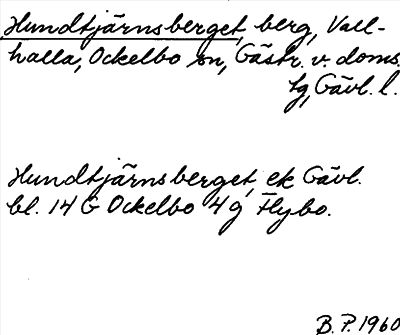 Hundtjärnsberget, berg, Vall-
halla, Ockelbo sn, Gästr. v. doms.
lg, Gävl. l.
Hundtjärnsberget, ek Gävl.
bl. 14 G Ockelbo 4 g Flybo.
B. P. 1960